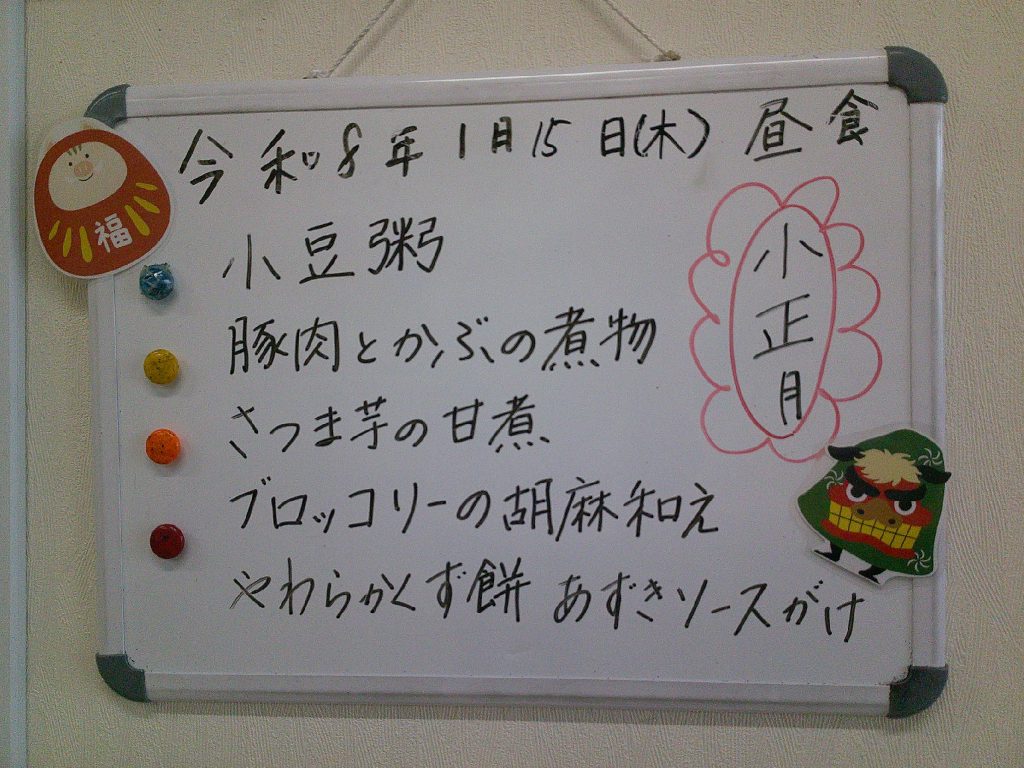 令和8年1月15日(木) 昼食
小正月
小豆粥
豚肉とかぶの煮物
さつま芋の甘煮
ブロッコリーの胡麻和え
やわらかくず餅 あずきソースがけ
福